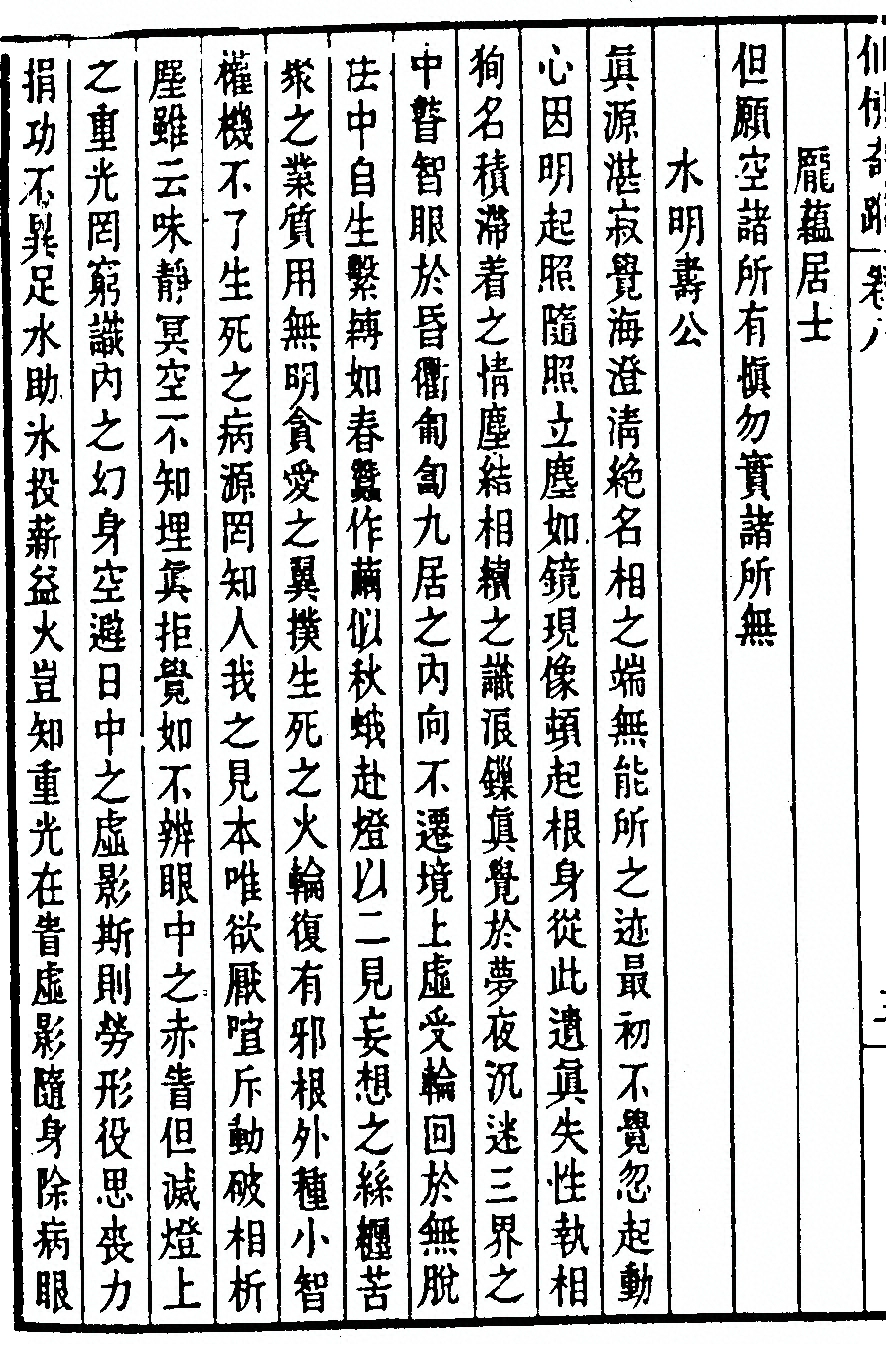 仙佛奇蹤 卷八
龐蘊居士
但願空諸所有慎勿實諸所無
永明壽公
眞源湛寂覺海澄清絶名相之端無能所之迹最初不覺忽起動
心因明起照隨照立塵如鏡現像頓起根身從此遺眞失性執相
狥名積滯着之情塵結相續之識浪鏁眞覺於夢夜沉迷三界之
中瞽智眼於昏衢匍匐九居之內向不遷境上虛受輪回於無脫
法中自生繫縛如春蠶作繭似秋蛾赴燈以二見妄想之絲纒苦
聚之業質用無明貪愛之翼撲生死之火輪復有邪根外種小智
權機不了生死之病源罔知人我之見本唯欲厭喧斥動破相析
塵雖云味靜冥空不知埋眞拒覺如不辨眼中之赤眚但滅燈上
之重光罔窮識內之幻身空避日中之虛影斯則勞形役思喪力
捐功不異足水助氷投薪益火豈知重光在眚虛影隨身除病眼